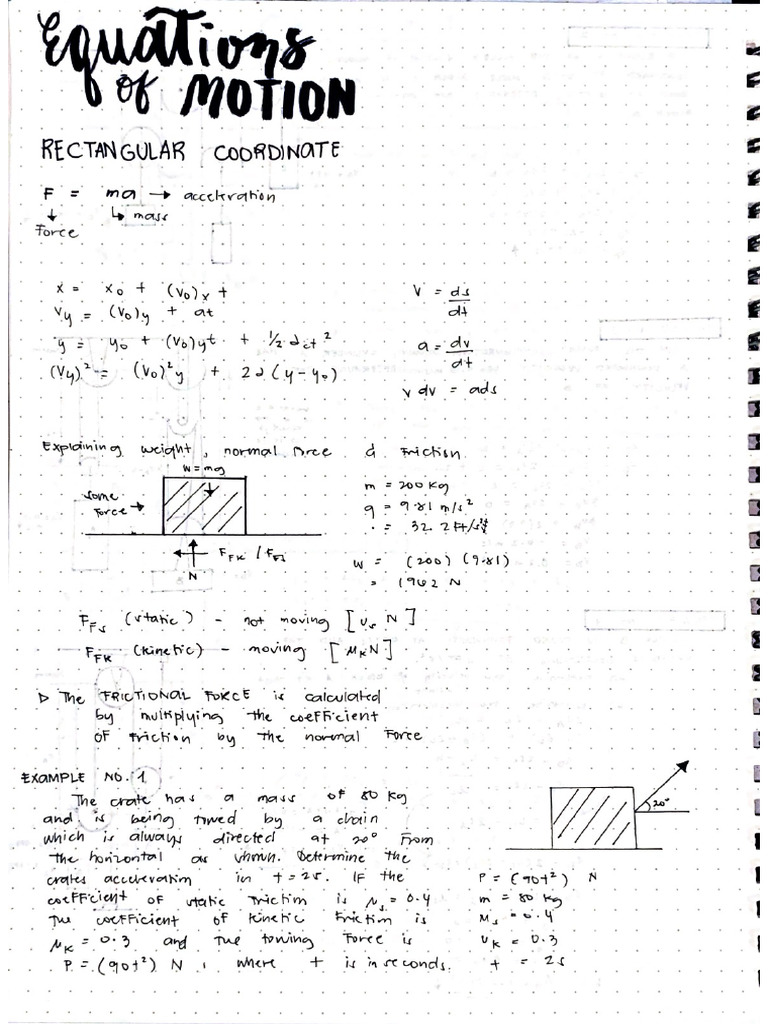 Equations
of MOTION
RECTANGULAR COORDINATE
F = ma → acceleration
↓ ↳ mass
Force
x = x₀ + (V₀)ₓ t
Vy = (V₀)y + at
y = y₀ + (V₀)yt + 1/2 act²
(Vy)² = (V₀)²y + 2a (y - y₀)
V = ds/dt
a = dv/dt
v dv = ads
Explaining weight, normal force & Friction
W = mg
some
force →
F_FK / F_FS
N
m = 200 kg
g = 9.81 m/s²
= 32.2 ft/s²
W = (200) (9.81)
= 1962 N
F_FS (static) - not moving [μs N]
F_FK (kinetic) - moving [μK N]
▷ The FRICTIONAL FORCE is calculated
by multiplying the coefficient
OF friction by the normal Force
EXAMPLE NO. 1
The crate has a mass of 80 kg
and is being towed by a chain
which is always directed at 20° from
the horizontal as shown. Determine the
crates acceleration in t = 2s. IF the
coefficient of static friction is μs = 0.4
The coefficient of kinetic friction is
μK = 0.3 and the towing Force is
P = (90t²) N, where t is in seconds.
20°
P = (90t²) N
m = 80 kg
μs = 0.4
μK = 0.3
t = 2s